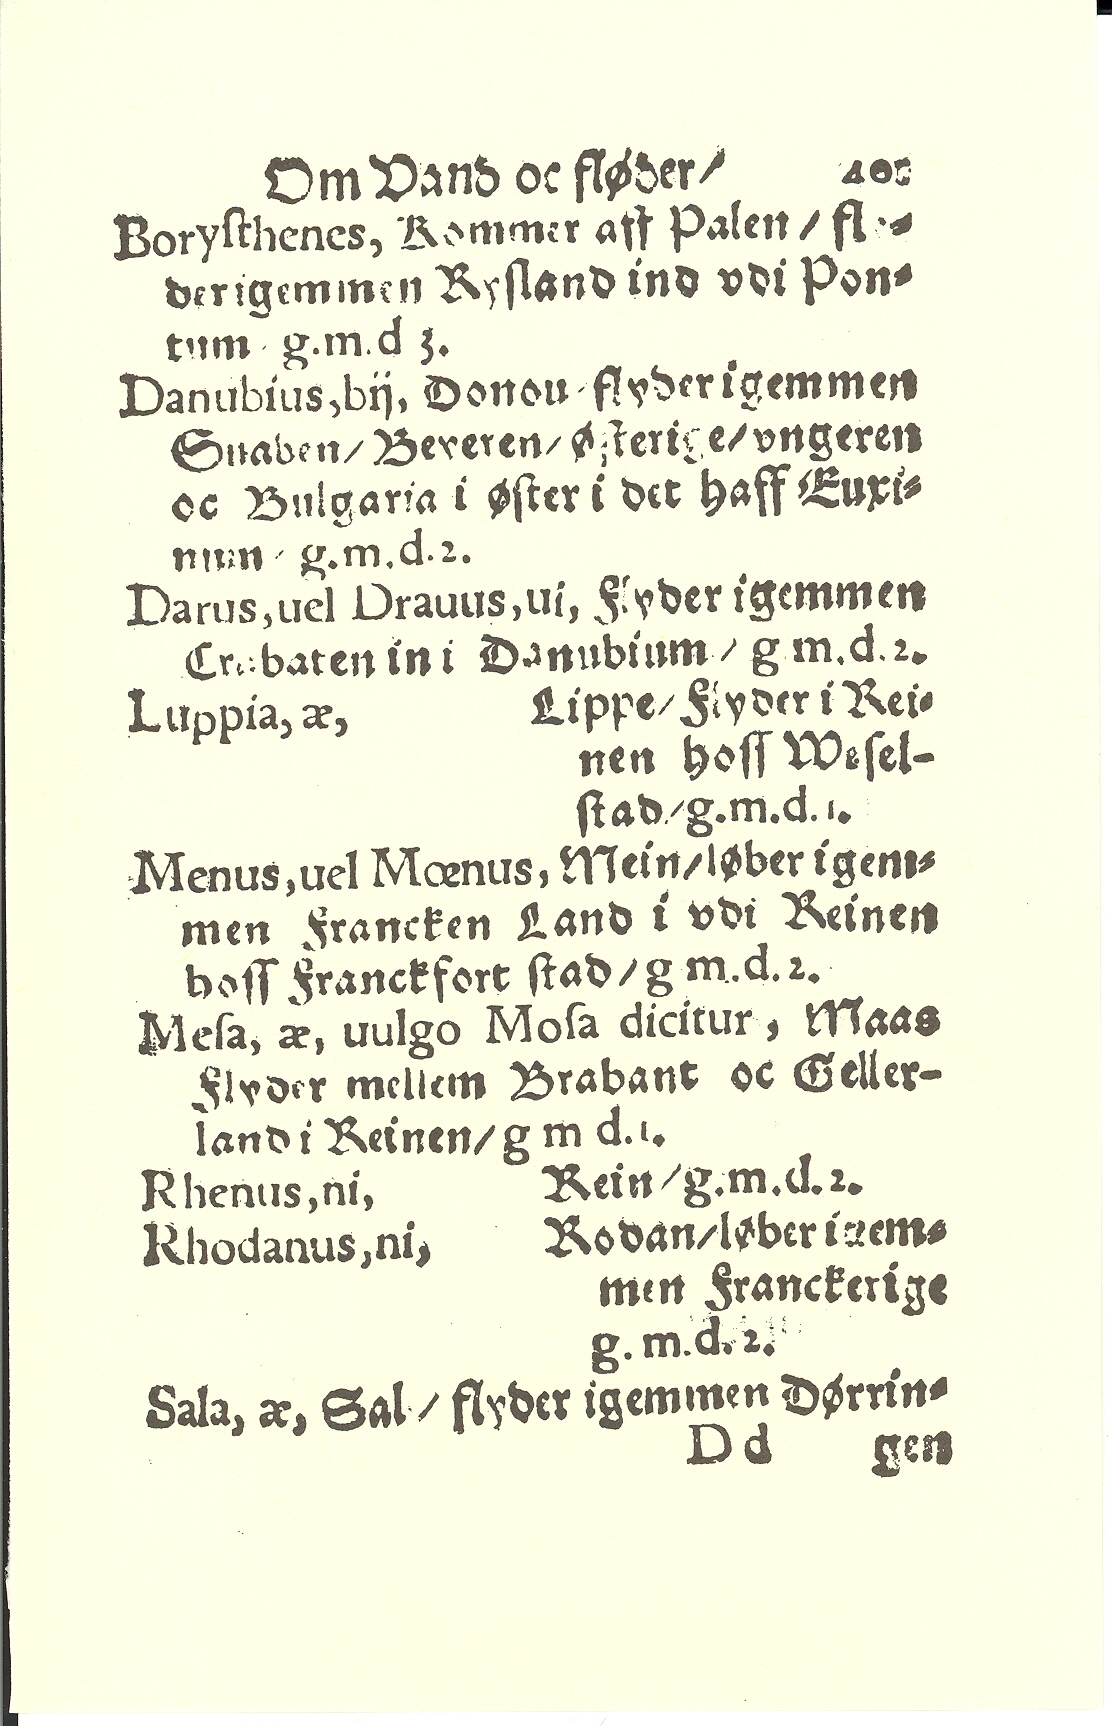 Om Vand oc fløder/
Borysthenes, Kommer aff Palen/
der igemmen Rysland ind vdi Pon⸗
tum g.m.d 3.
Danubius, bij, Donou flyder igemmen
Suaben/ Beyeren/ Østerige/ vngeren
oc Bulgaria i øster i det haff Euxi⸗
num g.m.d.2.
Darus, uel Drauus, ui, Flyder igemmen
Crabaten in i Danubium/ g m.d.2.
Luppia, æ, Lippe/ Flyder i Rei⸗
nen hoss Wesel-
stad/ g.m.d.1.
Menus, uel Mœnus, Mein/ løber igem⸗
men Francken Land i vdi Reinen
hoss Franckfort stad/ g m.d.2.
Mesa, æ, uulgo Mosa dicitur, Maas
Flyder mellem Brabant oc Geller-
land i Reinen/ g m d.1.
Rhenus, ni, Rein/ g.m.d.2.
Rhodanus, ni, Rodan/ løber igem⸗
men Franckerige
g.m.d.2.
Sala, æ, Sal/ flyder igemmen Dørrin⸗
D d gen